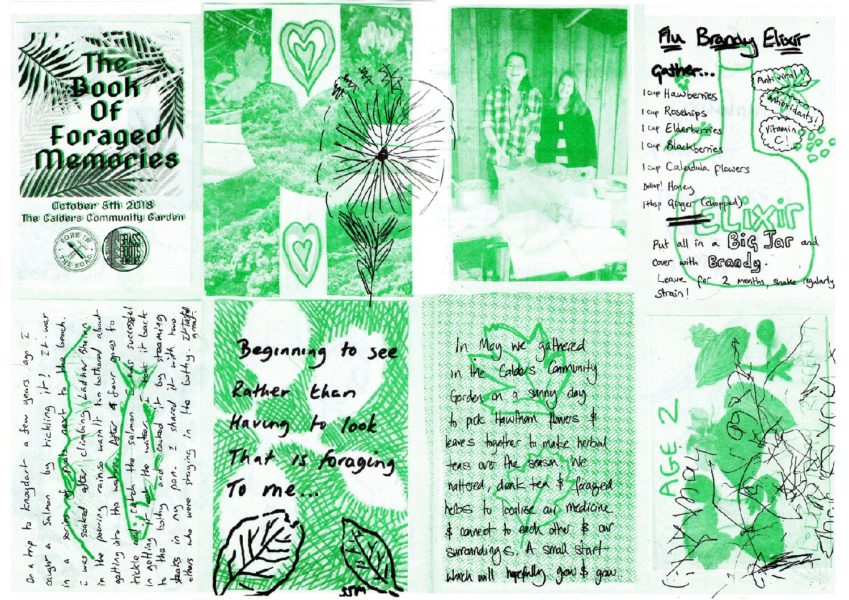 The
Book
Of
Foraged
Memories
October 6th 2018
The Calders Community Garden
FORK IN
THE ROAD
Flu Brandy Elixir
Gather...
1 cup Hawberries
1 cup Rosehips
1 cup Elderberries
1 cup Blackberries
1 cup Calendula flowers
Honey
1 tbsp Ginger (chopped)
Antiviral!
Antioxidants!
Vitamin
C!
ELIXIR
Put all in a Big Jar and
cover with Brandy.
Leave for 2 months, shake regularly
Strain!
On a trip to Knoydart a few years ago I
caught a salmon by tickling it! It was
in a series of pools next to the beach.
I was soaked after climbing Ladhar Bheinn
in the pouring rain so wasn't too bothered about
getting into the water. After 4 hours I got to
tickle and catch the salmon &
in getting it out the water. I took it back
to the bothy and cooked it by steaming
steaks in my pan. I shared it with two
others who were staying in the bothy. It tasted
great.
Beginning to see
Rather than
Having to look
That is foraging
To me...
SSM
In May we gathered
in the Calders Community
Garden on a sunny day
to pick Hawthorn flowers &
leaves together to make herbal
teas over the season. We
nattered, drank tea & foraged
herbs to localise our medicine
& connect to each other & our
surroundings. A small start-
which will hopefully grow & grow..
AGE 2